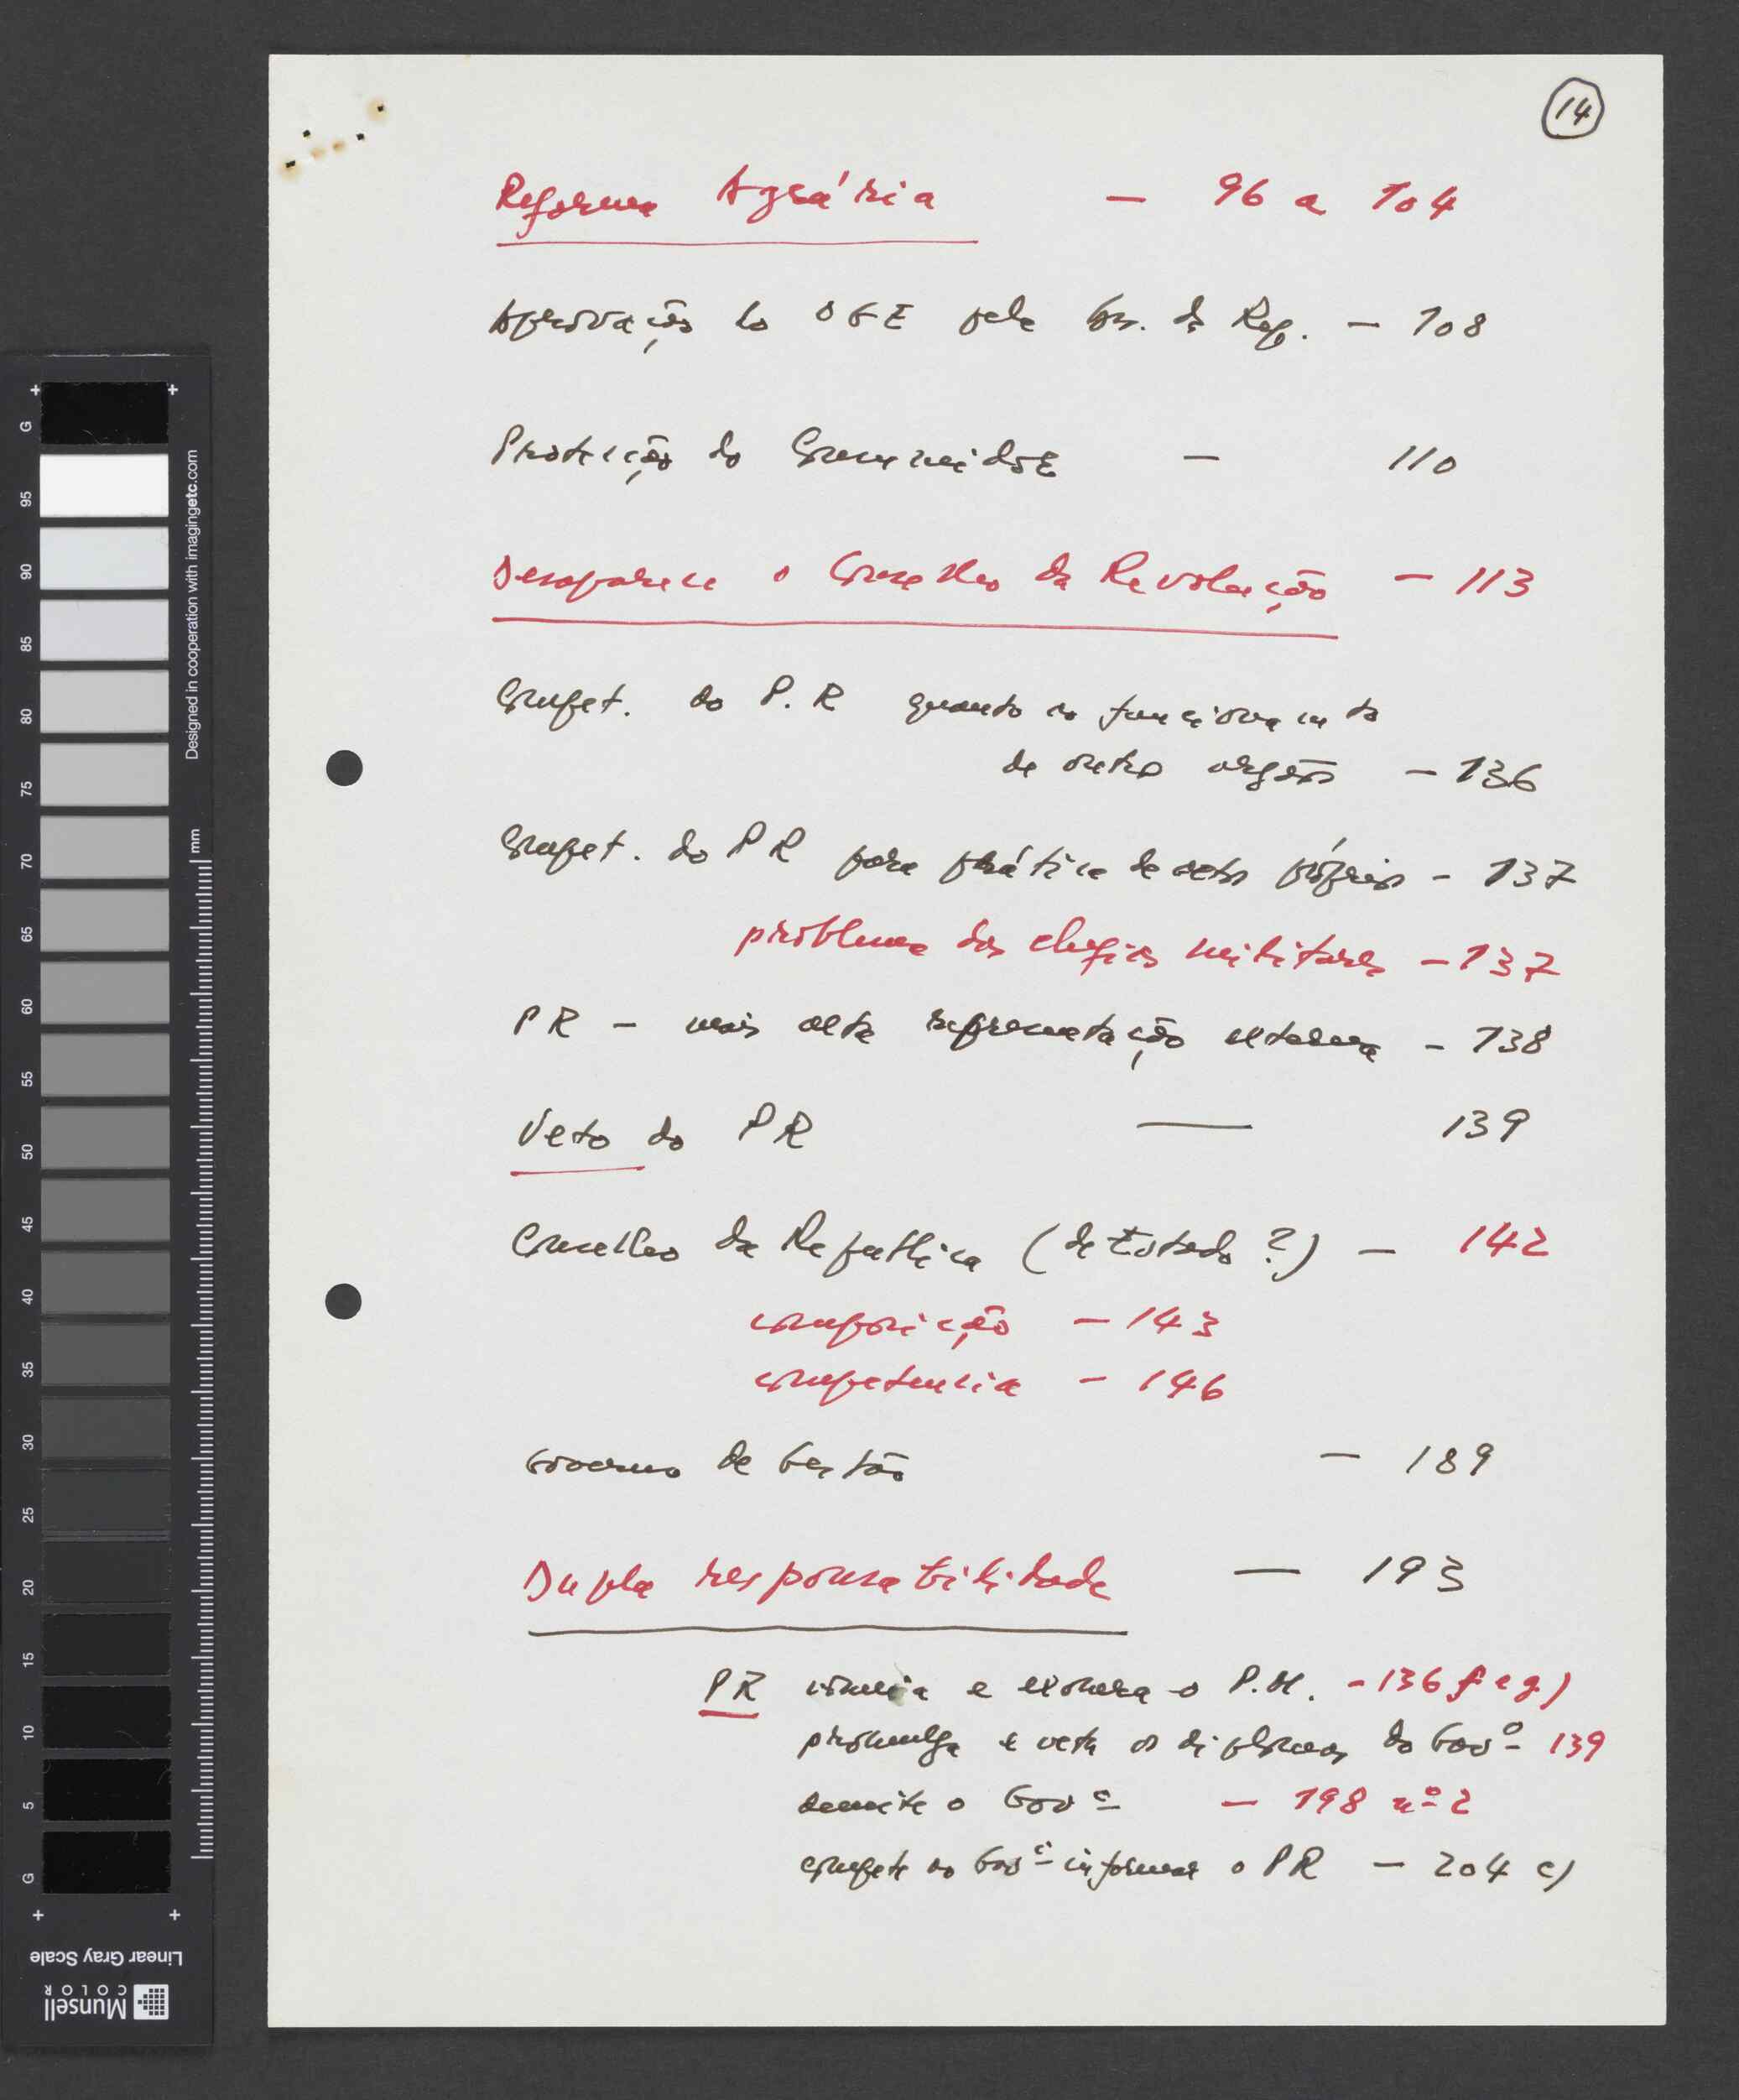 14
Reforma Agrária — 96 a 104
Aprovação do OGE pela Ass. da Rep. — 108
Protecção do Consumidor — 110
Desaparece o Conselho da Revolução — 113
Compet. do P.R quanto ao funcionamento
de outros orgãos — 136
Compet. do PR para prática de actos próprios - 137
problema das chefias militares — 137
PR — mais alta representação externa - 138
Veto do PR — 139
Conselho da República (de Estado?) — 142
composição — 143
competencia - 146
Governo de Gestão — 189
Dupla responsabilidade — 193
PR nomeia e exonera o P.M. - 136 f e g)
promulga e veta os diplomas do Govº - 139
demite o Govº — 198 nº 2
compete ao Govº informar o PR — 204 c)
+ +
G
95
90
85
80
75
70
65
60
55
50
45
40
35
30
25
20
15
10
5
G
+ +
Designed in cooperation with imagingetc.com
mm
Linear Gray Scale
Munsell
COLOR